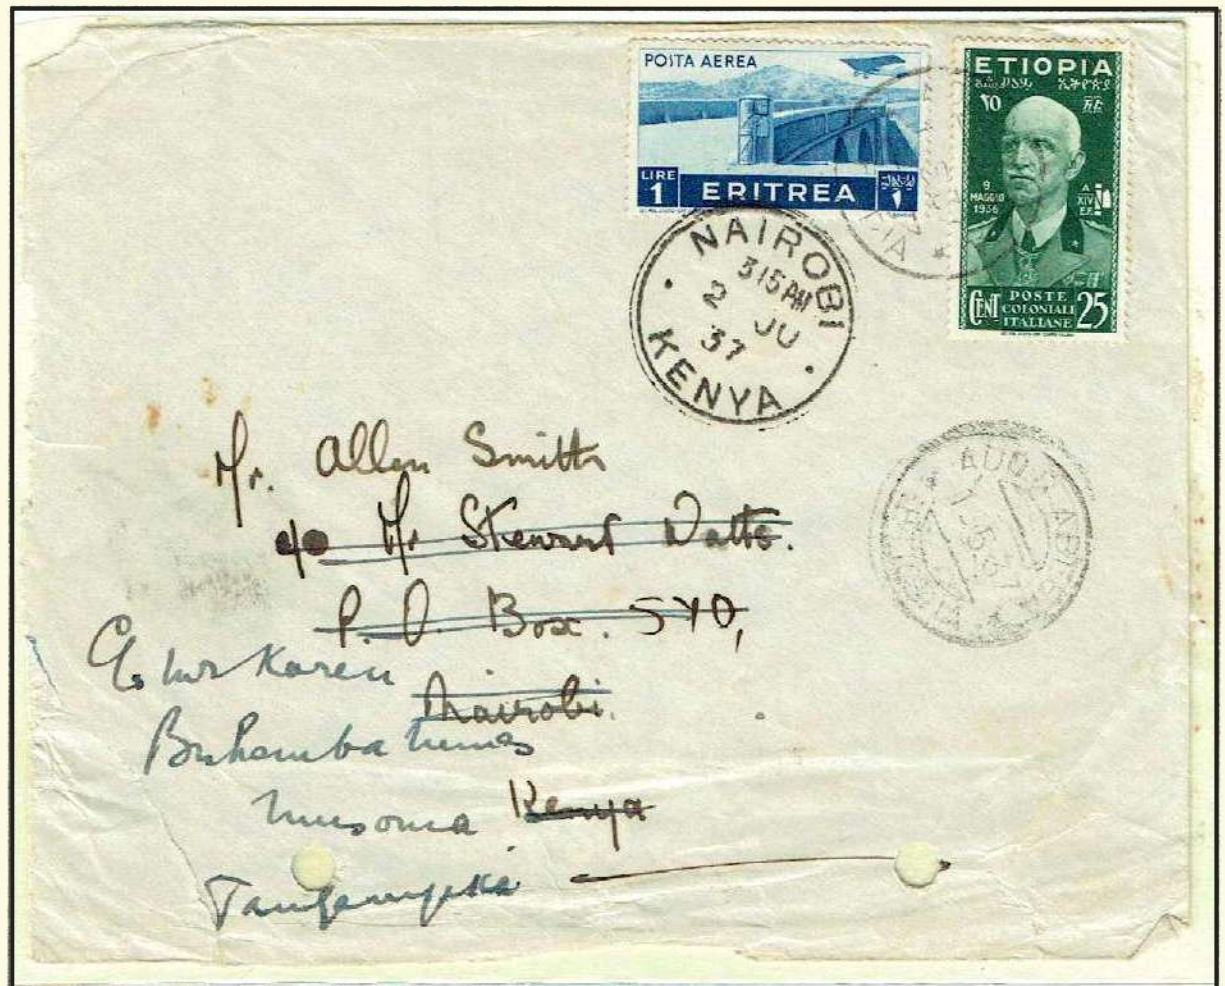 POSTA AEREA
LIRE
1
ERITREA
ETIOPIA
ኢትዮጵያ
٢٥
፳፭
9
MAGGIO
1936
A
XIV
E.F.
CENT
POSTE
COLONIALI
ITALIANE
25
NAIROBI
3 15 AM
2 JU
37
KENYA
ADDIS ABEBA
5.37
Mr. Allen Smith
c/o Mr Stewart Watts.
P. O. Box. 540,
Nairobi.
Kenya
C/o Mr Karen
Buhemba Mines
Musoma
Tanganyika